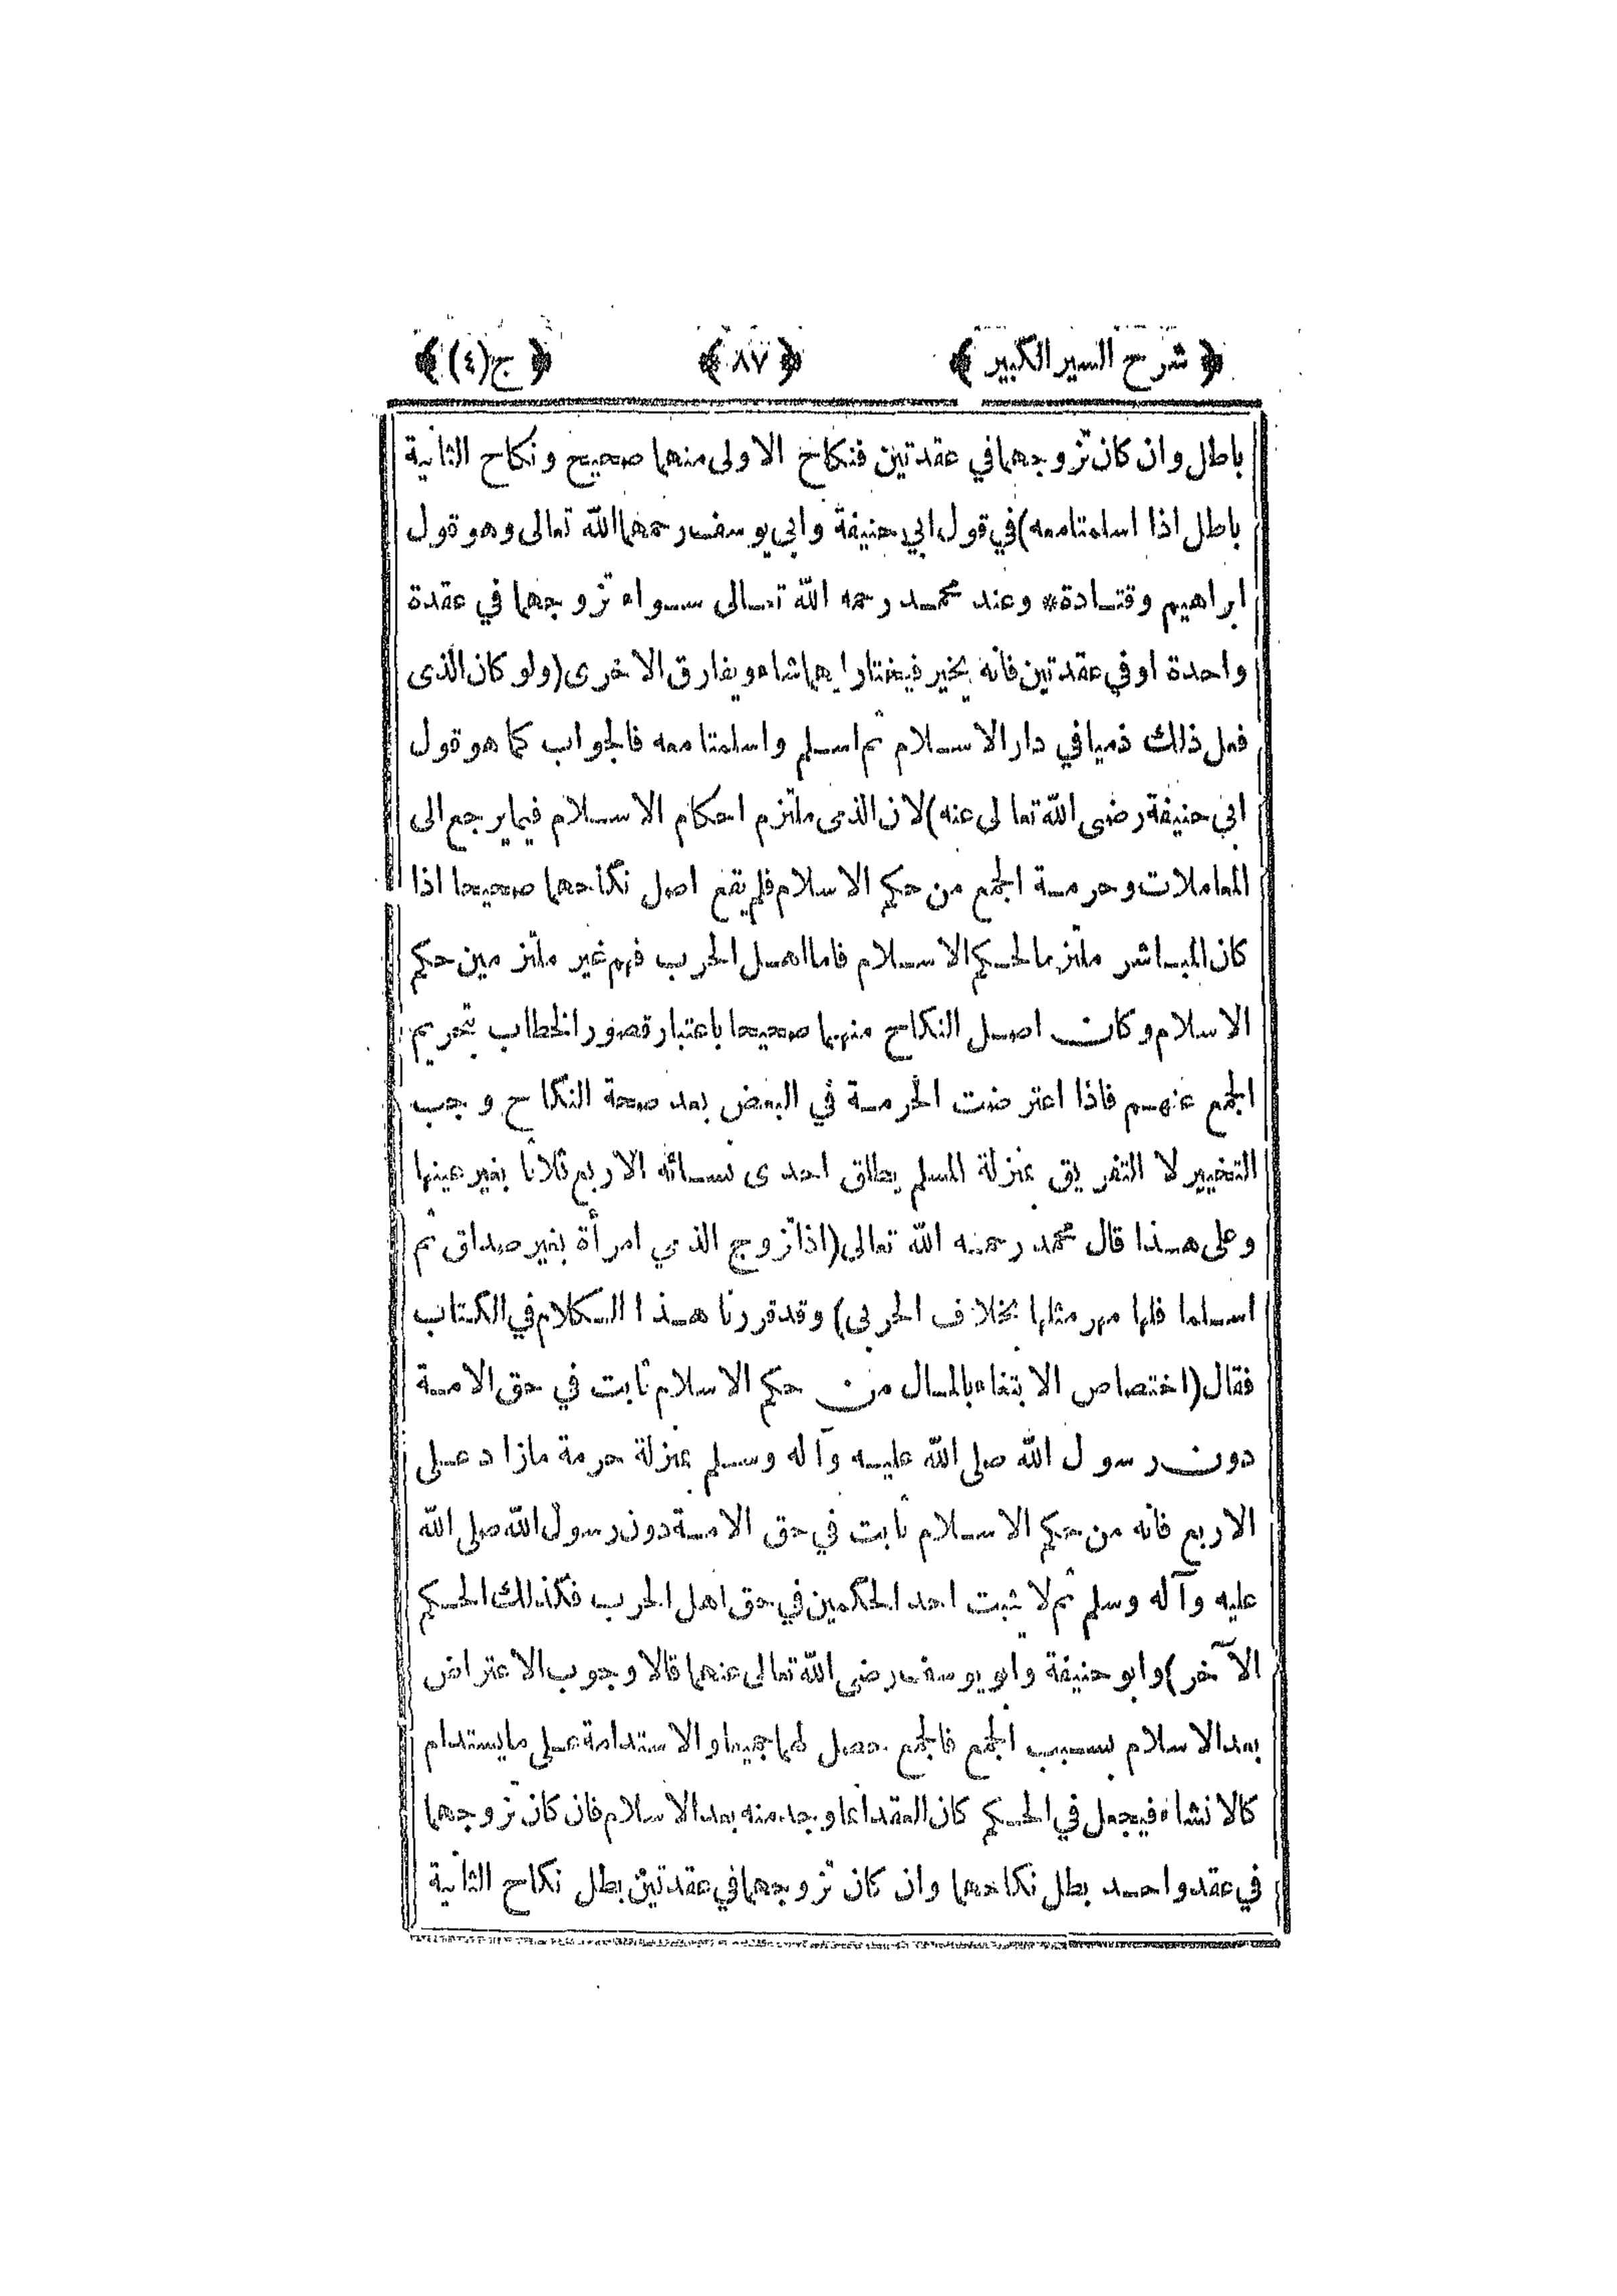 ﴿ شرح السير الكبير ﴾ ﴿ ٨٧ ﴾ ﴿ ج(٤) ﴾
باطل وان كان تزوجهما في عقدتين فنكاح الاولى منهما صحيح ونكاح الثانية
باطل اذا اسلمتا معه) في قول ابي حنيفة وابي يوسف رحمهما الله تعالى وهو قول
ابراهيم وقتادة* وعند محمد رحمه الله تعالى سواء تزوجهما في عقدة
واحدة او في عقدتين فانه يخير فيختار ايهما شاء ويفارق الاخرى (ولو كان الذى
فعل ذلك ذميا في دار الاسلام ثم اسلم واسلمتا معه فالجواب كما هو قول
ابي حنيفة رضى الله تعالى عنه) لان الذمى ملتزم احكام الاسلام فيما يرجع الى
المعاملات وحرمة الجمع من حكم الاسلام فلم يقع اصل نكاحهما صحيحا اذا
كان المباشر ملتزما لحكم الاسلام فاما اهل الحرب فهم غير ملتزمين حكم
الاسلام وكان اصل النكاح منهما صحيحا باعتبار قصور الخطاب بتحريم
الجمع عنهم فاذا اعترضت الحرمة في البعض بعد صحة النكاح وجب
التخيير لا التفريق بمنزلة المسلم يطلق احدى نسائه الاربع ثلاثا بغير عينها
وعلى هذا قال محمد رحمه الله تعالى (اذا تزوج الذمي امرأة بغير صداق ثم
اسلما فلها مهر مثلها بخلاف الحربى) وقد قررنا هذا الكلام في الكتاب
فقال (اختصاص الابتغاء بالمال من حكم الاسلام ثابت في حق الامة
دون رسول الله صلى الله عليه وآله وسلم بمنزلة حرمة مازاد على
الاربع فانه من حكم الاسلام ثابت في حق الامة دون رسول الله صلى الله
عليه وآله وسلم ثم لا يثبت احد الحكمين في حق اهل الحرب فكذلك الحكم
الآخر) وابو حنيفة وابو يوسف رضى الله تعالى عنهما قالا وجوب الاعتراض
بعد الاسلام بسبب الجمع فالجمع حصل لهما جميعا والاستدامة على ما يستدام
كالانشاء فيجعل في الحكم كان العقد انما وجد منه بعد الاسلام فان كان تزوجهما
في عقد واحد بطل نكاحهما وان كان تزوجهما في عقدتين بطل نكاح الثانية